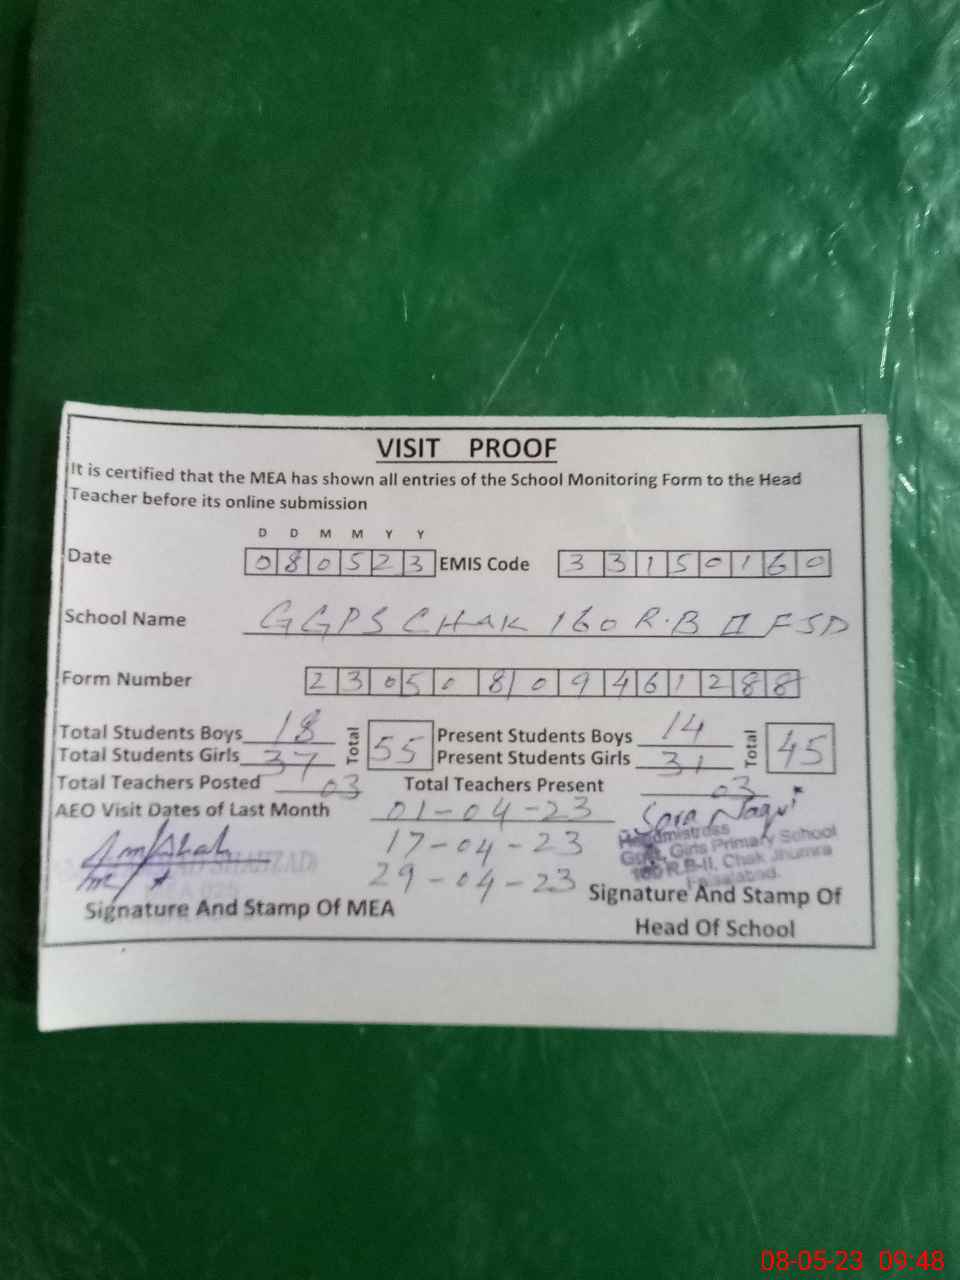 VISIT PROOF
It is certified that the MEA has shown all entries of the School Monitoring Form to the Head
Teacher before its online submission
D D M M Y Y
Date 080523 EMIS Code 33150160
School Name GGPS CHAK 160 R.B II FSD
Form Number 2305080946128 8
Total Students Boys 18 Total 55 Present Students Boys 14 Total 45
Total Students Girls 37 Present Students Girls 31
Total Teachers Posted 03 Total Teachers Present 03
AEO Visit Dates of Last Month 01-04-23
17-04-23
29-04-23
Headmistress
Govt. Girls Primary School
160 R.B-II, Chak Jhumra
Faisalabad.
Signature And Stamp Of MEA
Signature And Stamp Of
Head Of School
08-05-23 09:48